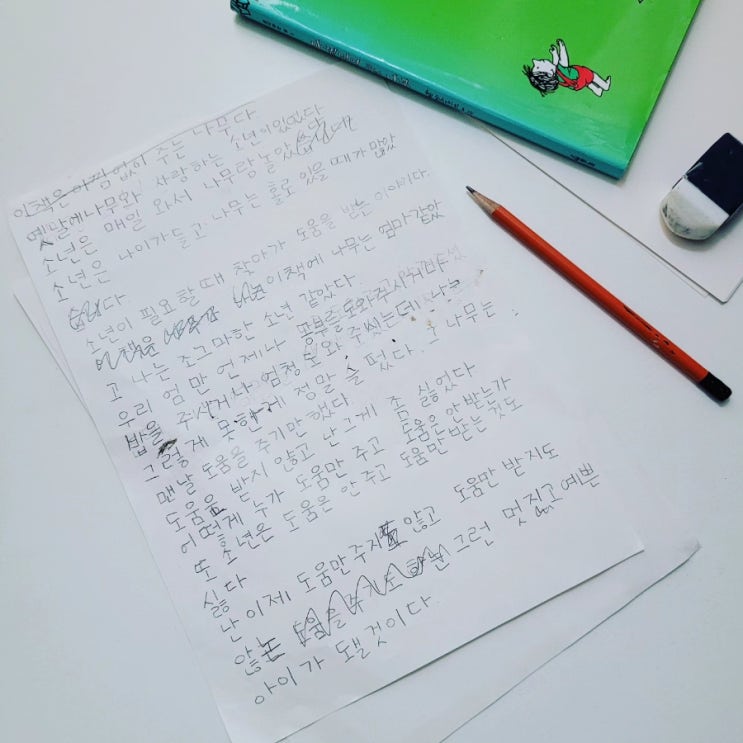 이책은아낌없이 주는 나무다
옛날에나무와 사랑하는 소년이있었다
소년은 매일 와서 나무랑놀았
소년은 나이가들고 나무는 홀로 있을 때가 많았
다.
소년이 필요할때 찾아가 도움을 받는 이야이다.
이책에 나무는 엄마같았
고 나는 조그마한 소년 같았다.
우리 엄만 언제나 공부를도와주시거나
밥을 주시거나 엄청 도와 주셨는데 나는
그렇게 못한게 정말 슬펐다. 그 나무는
맨날 도움을 주기만했다.
도움을 받지 않고 난그게 좀 싫었다
어떠게 누가 도움만 주고 도움은안받는가
또 소년은 도움은 안주고 도움만받는것도
싫다
난 이제 도움만주지 않고 도움만 받지도
않는 그런 멋지고예쁜
아이가 될것이다.